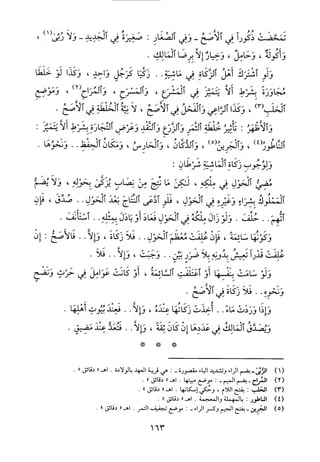 تَمَحَّضَتْ ذُكُوراً فِي ٱلْأَصَحِّ - وَفِي ٱلصِّغَارِ : صَغِيرَةٌ فِي ٱلْجَدِيدِ - وَلَا رُبَّىٰ(١) ،
وَأَكُولَةٌ ، وَحَامِلٌ ، وَخِيَارٌ إِلَّا بِرِضَا ٱلْمَالِكِ .
وَلَوِ ٱشْتَرَكَ أَهْلُ ٱلزَّكَاةِ فِي مَاشِيَةٍ . . زَكَّيَا كَرَجُلٍ وَاحِدٍ ، وَكَذَا لَوْ خَلَطَا
مُجَاوَرَةً بِشَرْطِ أَلَّا يَتَمَيَّزَ فِي ٱلْمَشْرَعِ ، وَٱلْمَسْرَحِ ، وَٱلْمُرَاحِ(٢) ، وَمَوْضِعِ
ٱلْحَلَبِ(٣) ، وَكَذَا ٱلرَّاعِي وَٱلْفَحْلُ فِي ٱلْأَصَحِّ ، لَا نِيَّةُ ٱلْخُلْطَةِ فِي ٱلْأَصَحِّ .
وَٱلْأَظْهَرُ : تَأْثِيرُ خُلْطَةِ ٱلثَّمَرِ وَٱلزَّرْعِ وَٱلنَّقْدِ وَعَرْضِ ٱلتِّجَارَةِ بِشَرْطِ أَلَّا يَتَمَيَّزَ :
ٱلنَّاطُورُ(٤) ، وَٱلْجَرِينُ(٥) ، وَٱلدُّكَّانُ ، وَٱلْحَارِسُ ، وَمَكَانُ ٱلْحِفْظِ . . وَنَحْوُهَا .
وَلِوُجُوبِ زَكَاةِ ٱلْمَاشِيَةِ شَرْطَانِ :
مُضِيُّ ٱلْحَوْلِ فِي مِلْكِهِ ، لَكِنْ مَا نُتِجَ مِنْ نِصَابٍ يُزَكَّىٰ بِحَوْلِهِ ، وَلَا يُضَمُّ
ٱلْمَمْلُوكُ بِشِرَاءٍ وَغَيْرِهِ فِي ٱلْحَوْلِ ، فَلَوِ ٱدَّعَى ٱلنِّتَاجَ بَعْدَ ٱلْحَوْلِ . . صُدِّقَ ، فَإِنِ
ٱتُّهِمَ . . حُلِّفَ . وَلَوْ زَالَ مِلْكُهُ فِي ٱلْحَوْلِ فَعَادَ أَوْ بَادَلَ بِمِثْلِهِ . . ٱسْتَأْنَفَ .
وَكَوْنُهَا سَائِمَةً ، فَإِنْ عُلِفَتْ مُعْظَمَ ٱلْحَوْلِ . . فَلَا زَكَاةَ ، وَإِلَّا . . فَٱلْأَصَحُّ : إِنْ
عُلِفَتْ قَدْراً تَعِيشُ بِدُونِهِ بِلَا ضَرَرٍ بَيِّنٍ . . وَجَبَتْ ، وَإِلَّا . . فَلَا .
وَلَوْ سَامَتْ بِنَفْسِهَا أَوِ ٱعْتَلَفَتِ ٱلسَّائِمَةُ ، أَوْ كَانَتْ عَوَامِلَ فِي حَرْثٍ وَنَضْحٍ
وَنَحْوِهِ . . فَلَا زَكَاةَ فِي ٱلْأَصَحِّ .
وَإِذَا وَرَدَتْ مَاءً . . أُخِذَتْ زَكَاتُهَا عِنْدَهُ ، وَإِلَّا . . فَعِنْدَ بُيُوتِ أَهْلِهَا .
وَيُصَدَّقُ ٱلْمَالِكُ فِي عَدَدِهَا إِنْ كَانَ ثِقَةً ، وَإِلَّا . . فَتُعَدُّ عِنْدَ مَضِيقٍ .
* * *
(١) الرُّبَّىٰ - بضم الراء وتشديد الباء مقصورة - : هي قريبة العهد بالولادة . اهـ « دقائق » .
(٢) المُراح - بضم الميم - : موضع مبيتها . اهـ « دقائق » .
(٣) الحَلَب : بفتح اللام ، وحُكي إسكانها . اهـ « دقائق » .
(٤) الناطور : بالمهملة والمعجمة . اهـ « دقائق » .
(٥) الجَرِين - بفتح الجيم وكسر الراء - : موضع تجفيف الثمر . اهـ « دقائق » .
١٦٣